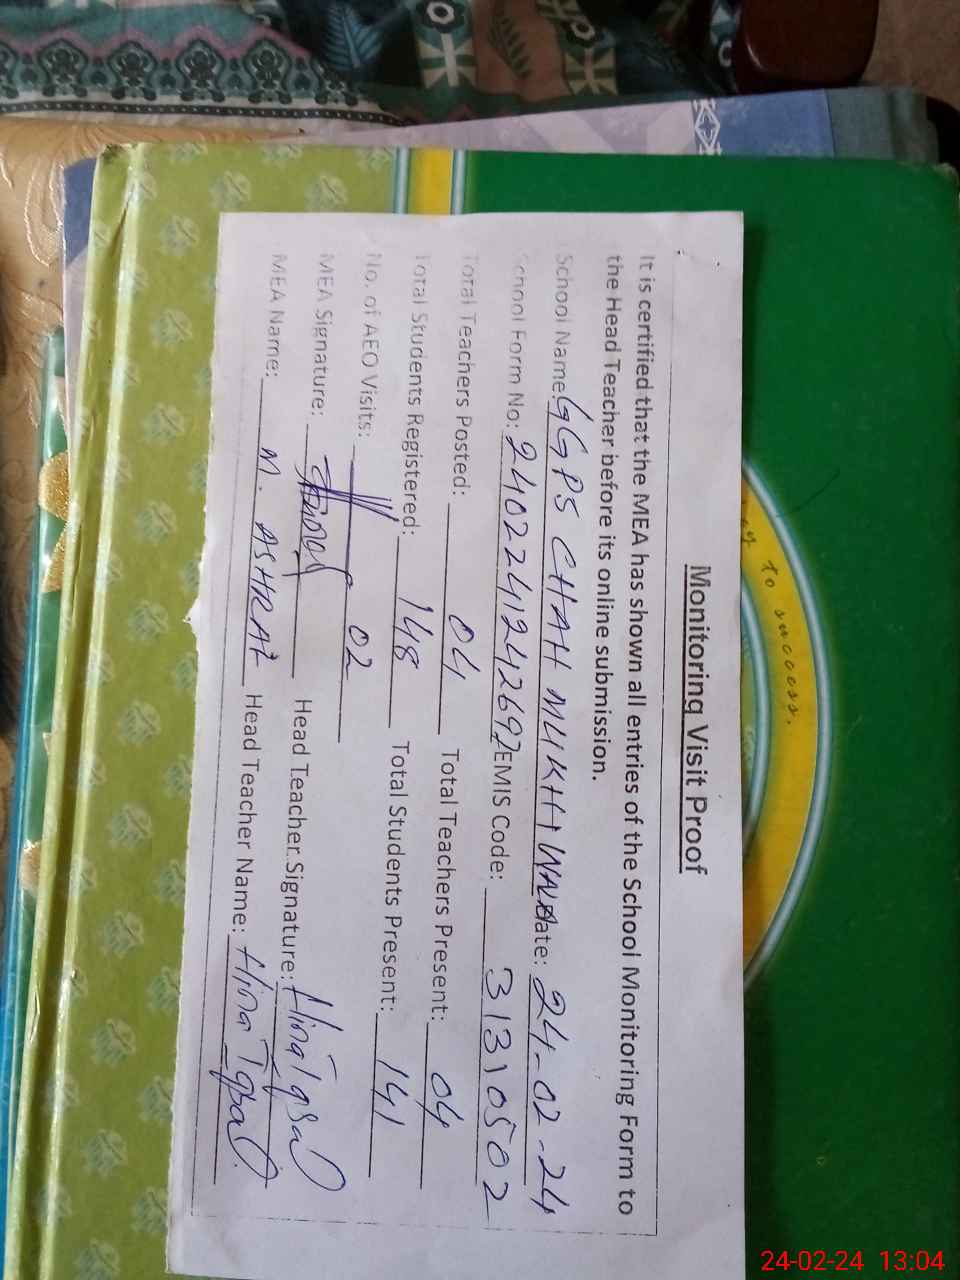 Monitoring Visit Proof
It is certified that the MEA has shown all entries of the School Monitoring Form to
the Head Teacher before its online submission.
School Name: GGPS CHAH MUKHI WALA Date: 24-02-24
School Form No: 2402241242692 EMIS Code: 31310502
Total Teachers Posted: 04 Total Teachers Present: 04
Total Students Registered: 148 Total Students Present: 141
No. of AEO Visits: 02
MEA Signature: Head Teacher Signature: Hina Iqbal
MEA Name: M. ASHRAF Head Teacher Name: Hina Iqbal
to success.
24-02-24 13:04